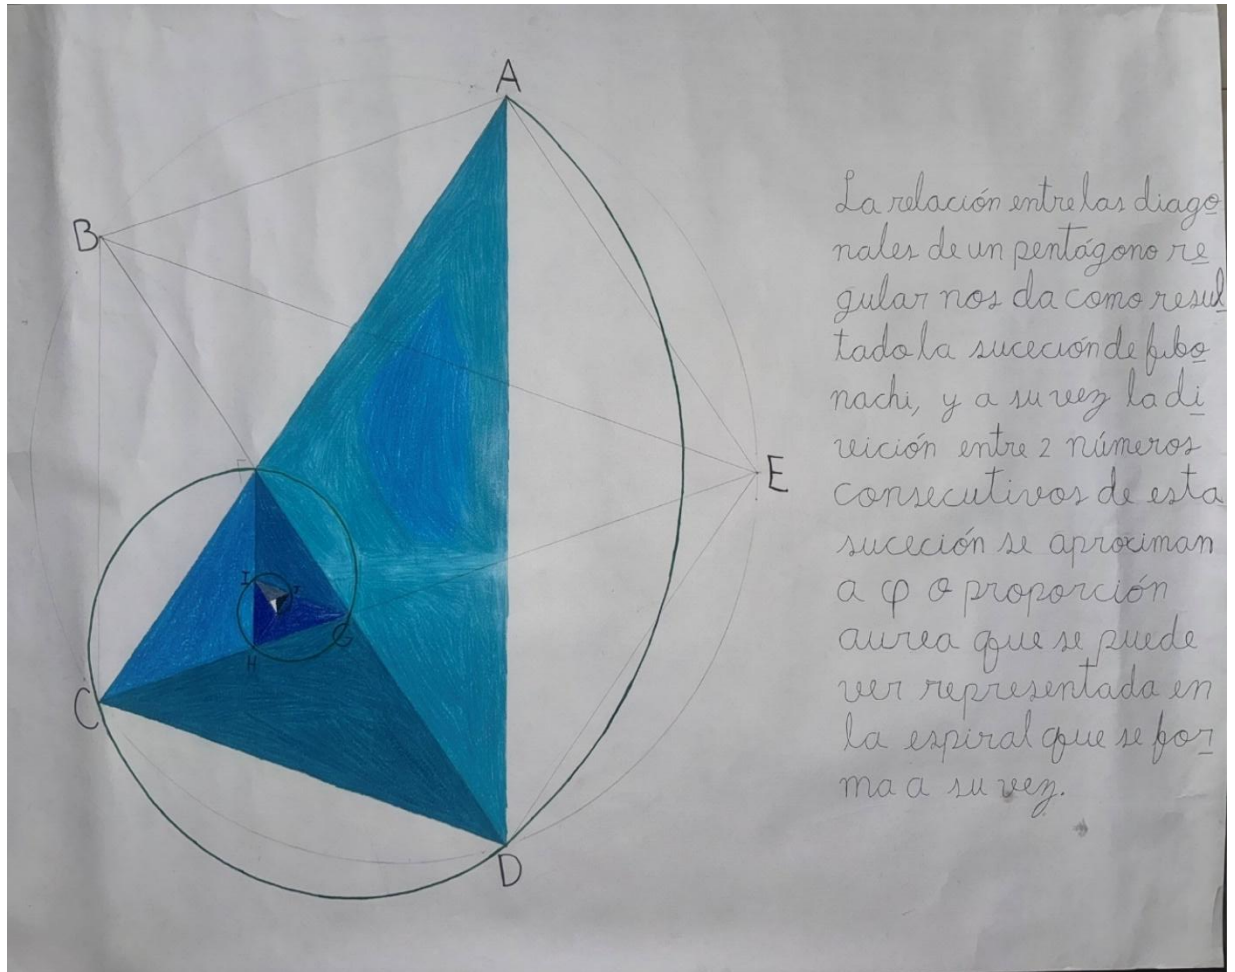 A
B
E
C
D
I
H
G
La relación entre las diago
nales de un pentágono re
gular nos da como resul
tado la suceción de fibo
nachi, y a su vez la di
vición entre 2 números
consecutivos de esta
suceción se aproximan
a φ o proporción
aurea que se puede
ver representada en
la espiral que se for
ma a su vez.